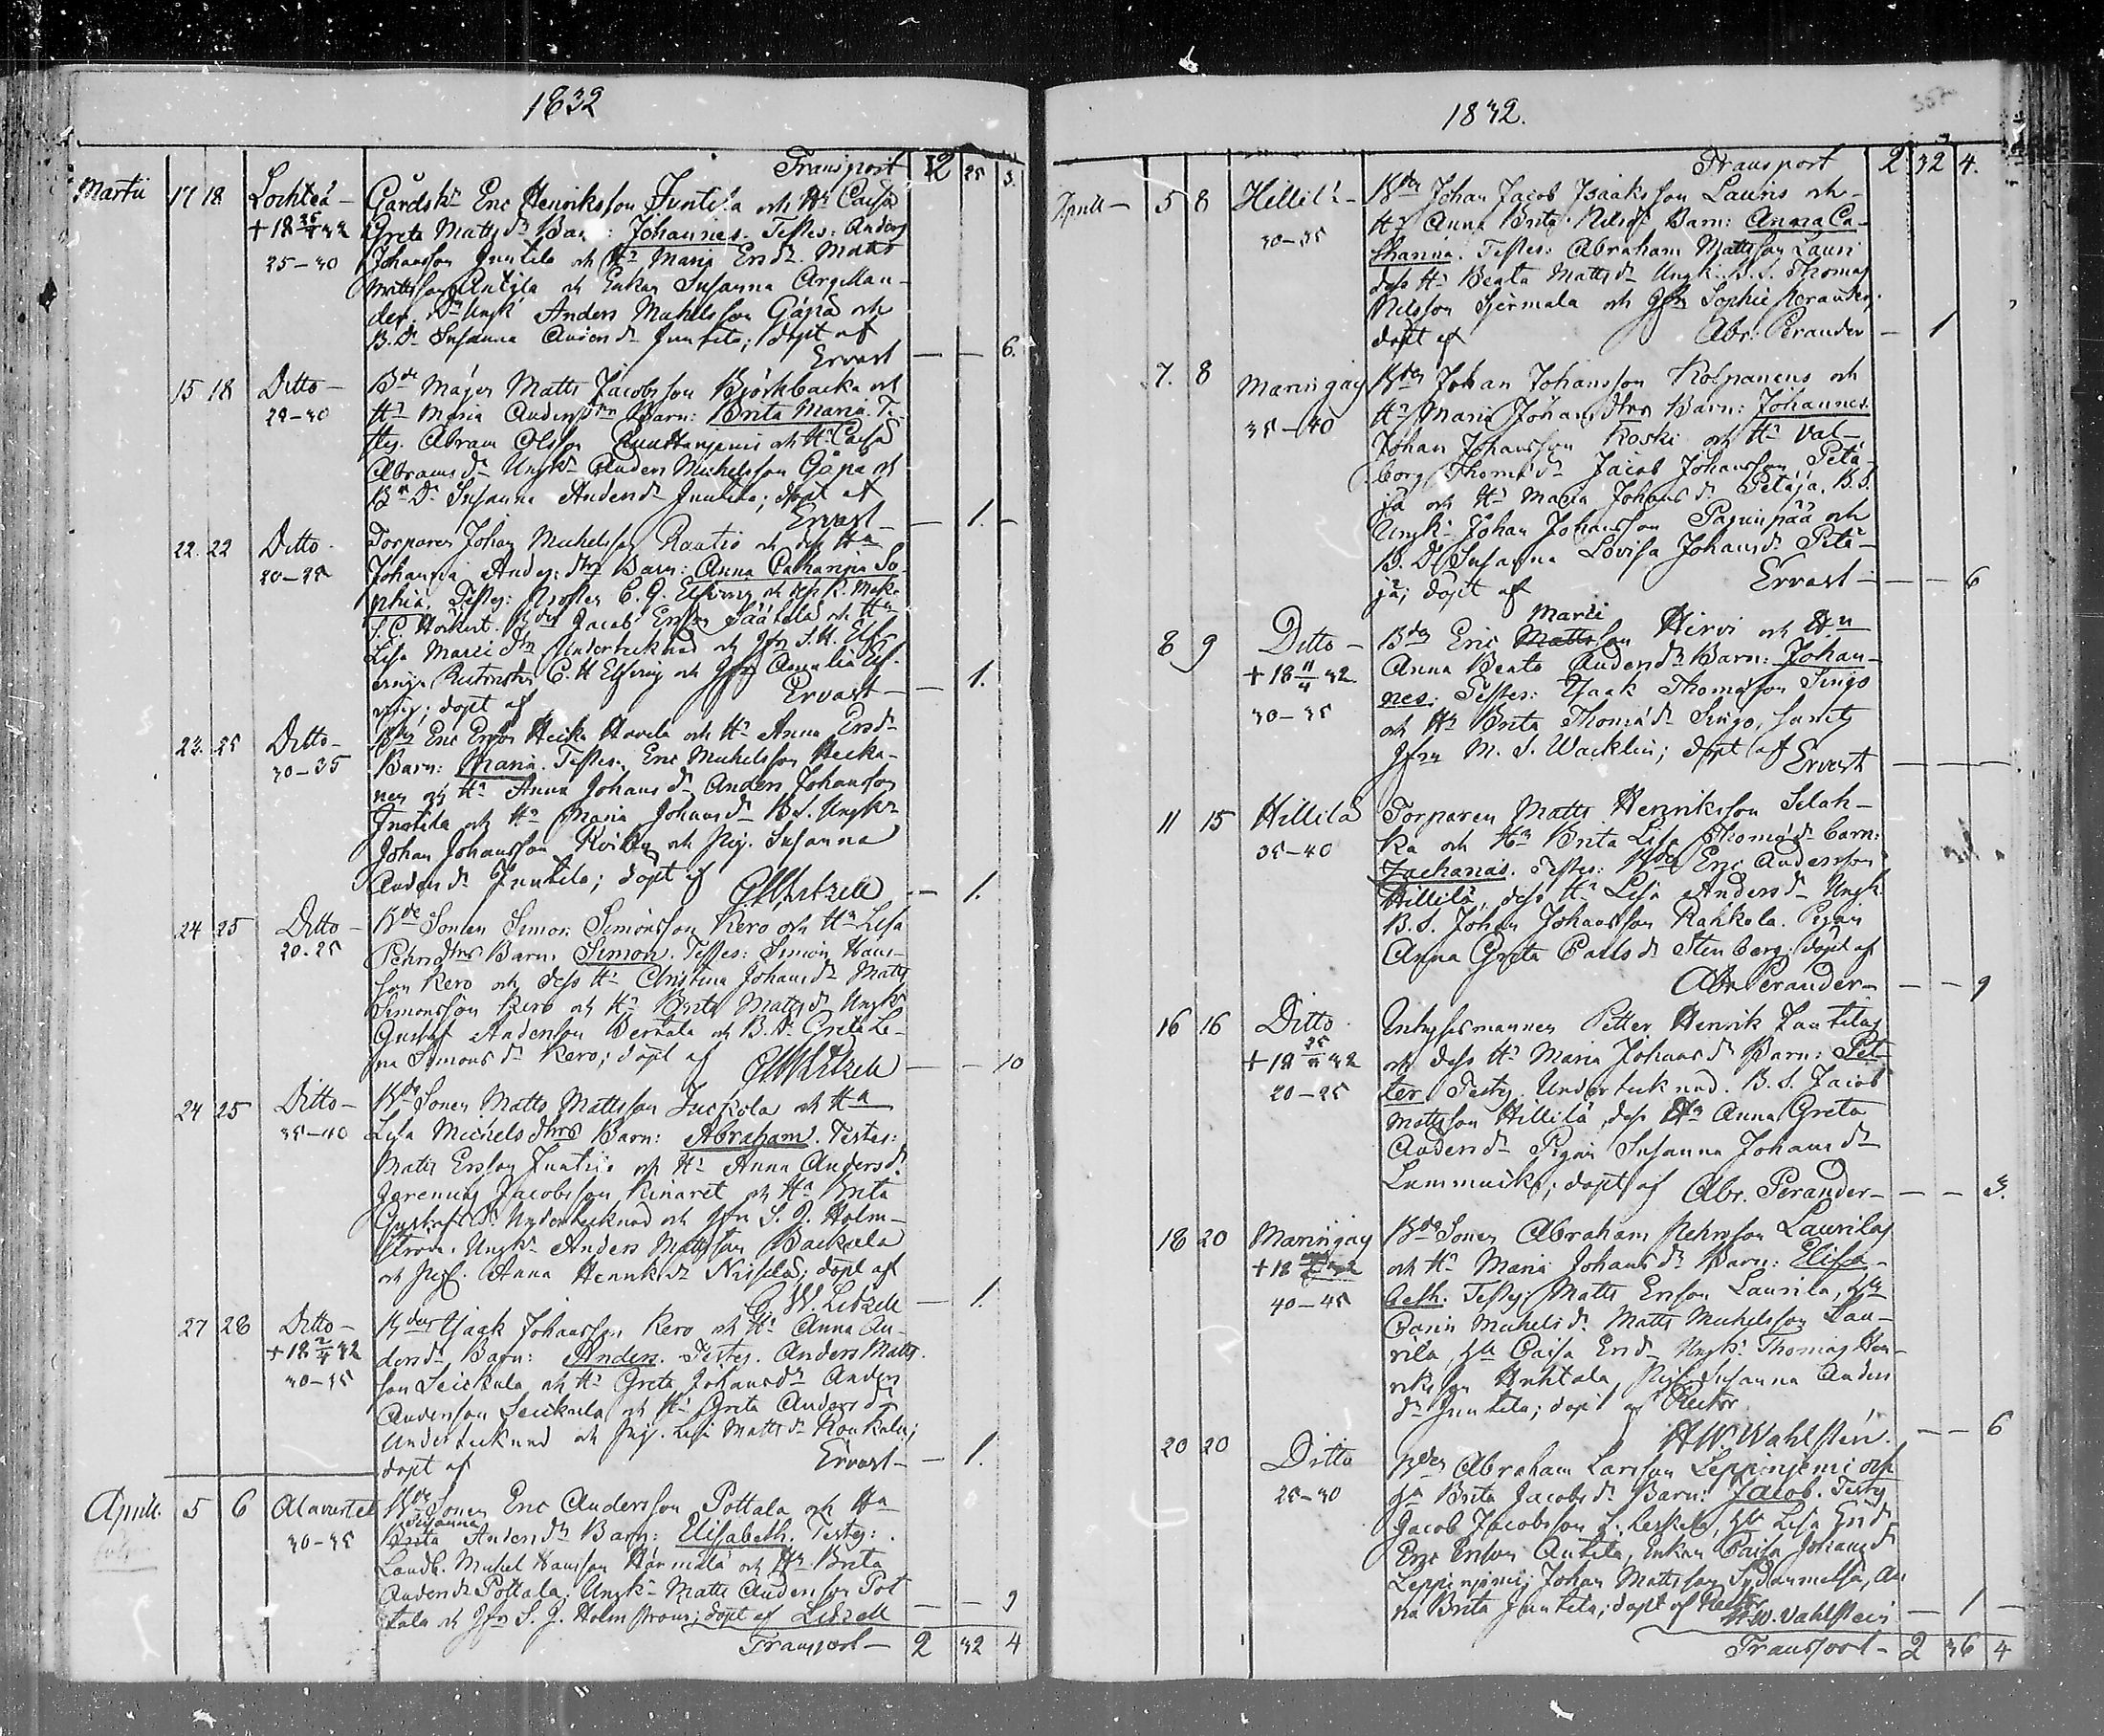 1832
Transport 2 25 3.
Martii 17 18 Lochteå - Gårdsk: Eric Henriksson Juntila och Hu Caisa
+ 18 25/3 32 Greta Mattsdr Barn: Johannes. Testes: Anders
25-30 Johansson Juntila och Hu Maria Ersdr. Matts
Mattsson Antila och Enkan Susanna Argillan-
der. Ungk Anders Michelsson Gåpå och
B. Dr Susanna Andersdr Juntila; döpt af
Ervast — — 6.
15 18 Ditto - Bde Måges Matts Jacobsson Björkbacka och
29-30 Hu Maria Andersdtrs Barn: Brita Maria. Te-
stes. Abram Olsson och Hu Caisa
Abramsdr Ungk Anders Michelsson Gåpå och
Bn Dr Susanna Andersdr Juntila; döpt af
Ervast — 1. —
22. 22 Ditto. Torparen Johan Michelsson Rautio och dess Hu
20-25 Johanna Anders dtrs Barn: Anna Catharina So-
phia. Testes: Prosten C. G. Elfving och dess K. Maka
S. C. Höckert. Bden Jacob Ersson Säätelä och Hu
Lisa Mariedtr Undertecknad och Jfn S. H. Elf-
ving Rectorster C. H Elfving och Jfn Amalia Elf-
ving; döpt af Ervast — — 1.
23. 25 Ditto - Bden Eric Ersson Heicka Havela och Hu Anna Ersdr
30-35 Barn: Maria. Testes. Eric Michelsson Heicka-
nen och Hu Anna Johansdr Anders Johansson
Juntila och Hu Maria Johansdr B. S. Ungk
Johan Johansson och Pig. Susanna
Andersdr Juntila; döpt af G. W. Litzell — 1.
24 25 Ditto - Bde Sonen Simon Simonsson Kero och Hu Lisa
20-25 Pehrsdtrs Barn. Simon. Testes: Simon Hans-
son Kero och dess Hu Christina Johansdr Matts
Simonsson Kero och Hu Brita Mattsdr Ungk
Gustaf Andersson Bertala och B. Dr Greta Le-
na Simonsdr Kero; döpt af G. W. Litzell — — 10
24 25 Ditto - Bde Sonen Matts Mattsson Juckola och Hu
35-40 Lisa Michelsdtrs Barn: Abraham. Testes:
Matts Ersson Juntila och Hu Anna Andersdr.
Jeremias Jacobsson Kinaret och Hu Brita
Gustafsdr. Undertecknad och Jfn S. J. Holm-
ström. Ungk Anders Mattsson Backala
och Pig. Anna Henriksdr Nissela; döpt af
G. W. Litzell — 1.
27 28 Ditto - Bden Isaak Johansson Kero och Hu Anna An-
+ 18 2/4 32 dersdr Barn: Anders. Testes. Anders Matts-
30-35 son Seickula och Hu Greta Johansdr Anders
Andersson Seickula och Hu Greta Andersdr
Undertecknad och Pig. Lisa Mattsdr Konkala;
döpt af Ervast — — 1.
Aprill. 5 6 Alaveteli Bde Sonen Eric Andersson Pottala och Hu
Susanna
30-35 Brita Andersdr Barn: Elisabeth. Testes:
Landb. Michel Hansson Härmälä och Hu Brita
Andersdr Pottala. Ungk Matts Andersson Pot
tala och Jfn S. J. Holmström; döpt af Litzell — — 9
Transport — 2 32 4
1832.
357
Transport 2 32 4.
Aprill - 5 8 Hillilä - Bden Johan Jacob Isaaksson Lauris och
30-35 Hu Anna Brita Nilsdr Barn: Anna Ca-
tharina. Testes: Abraham Mattsson Lauri
dess Hu Beata Mattsdr Ungk. B. S. Thomas
Nilsson Sjermala och Jfn Sophie Perander;
döpt af Abr. Perander — 1
7. 8 Maringais Bden Johan Johansson Kolpanens och
35-40 Hu Maria Johansdtrs Barn: Johannes.
Johan Johansson Koski och Hu Val-
borg Thomædr Jacob Johansson Petä-
jä och Hu Maria Johansdr Petäjä. B. S.
Ungk Johan Johansson och
B. Dr Susanna Lovisa Johansdr Petä-
jä; döpt af Ervast — — 6
Marci
8 9 Ditto - Bden Eric Mattsson Hirvi och Hu
+ 18 11/4 32 Anna Beata Andersdr Barn: Johan-
30-35 nes. Testes: Isaak Thomasson Singo
och Hu Brita Thomædr Singo, samt
Jfrn M. S. Wacklin; döpt af Ervast — —
11 15 Hillilä Torparen Matts Henriksson Selah-
35-40 ka och Hu Brita Lisa Thomædr barn:
Zacharias. Testes: Bden Eric Andersson
Hillilä, dess Hu Lisa Andersdr Ungk
B. S. Johan Johansson Rahkola. Pigan
Anna Greta Carlsdr Stenberg; döpt af
Abr. Perander — — 9
16 16 Ditto. Inhysesmannen Petter Henrik Juntilas
+ 18 25/4 32 och dess Hu Maria Johansdr Barn: Pet-
20-25 ter Testes. Undertecknad. B. S. Jacob
Mattsson Hillilä, dess Hu Anna Greta
Andersdr Pigan Susanna Johansdr
Lummucka; döpt af Abr. Perander — — 3.
18 20 Maringais Bde Sonen Abraham Pehrsson Laurilas
+ 18 och Hu Maria Johansdr Barn: Elisa-
40-45 beth. Testes: Matts Ersson Laurila, Hu
Carin Michelsdr Matts Michelsson Lau-
rila, Hu Caisa Ersdr Ungk: Thomas Hen-
riksson Huhtala, Pig. Susanna Anders
dr Juntila; döpt af Rector
H. W. Wahlstén. — — 6
20 20 Ditto Bden Abraham Larsson Leppiniemi och
25-30 Hu Brita Jacobsdr Barn: Jacob. Testes
Jacob Jacobsson L. Hu Lisa Ersdr
Eric Ersson Antila, Enkan Caisa Johansdr
Leppiniemi; Johan Mattsson Sydänmetsä, An
na Brita Juntila; döpt af Rector
H. W. Wahlstein — 1 —
Transport — 2 36 4